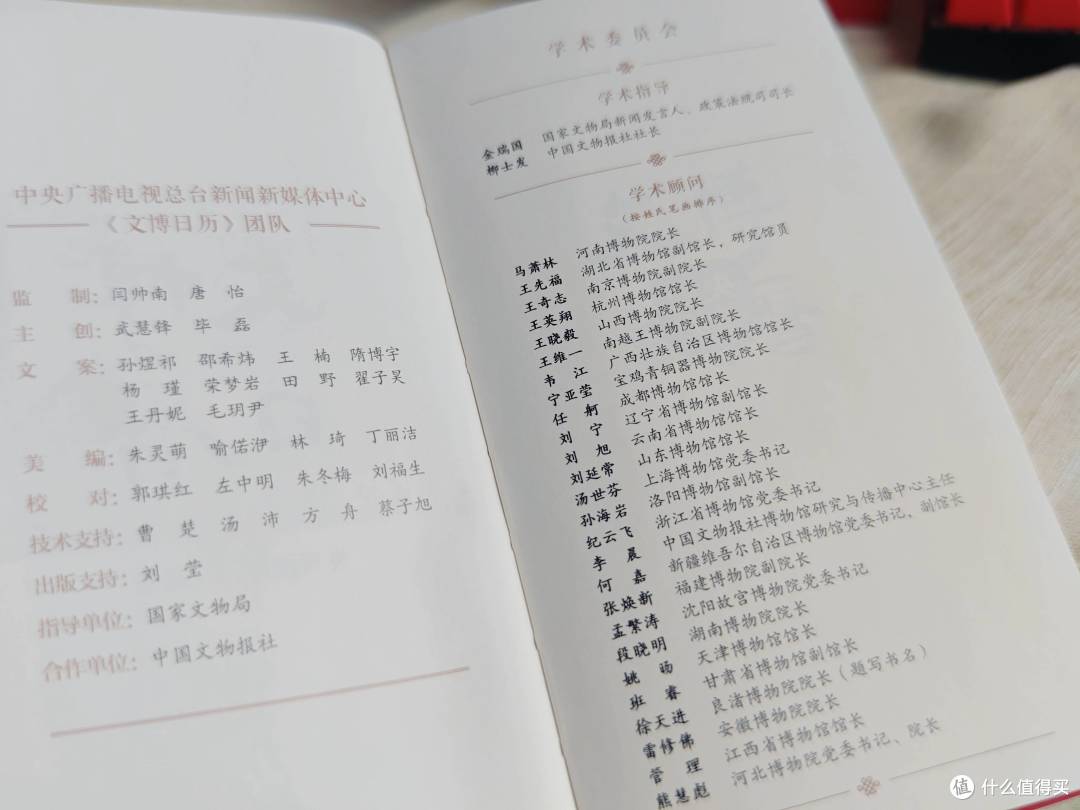 中央广播电视总台新闻新媒体中心
《文博日历》团队
监 制：闫帅南 唐 怡
主 创：武慧锋 毕 磊
文 案：孙煜祁 邵希炜 王 楠 隋博宇
杨 瑾 荣梦岩 田 野 翟子昊
王丹妮 毛玥尹
美 编：朱灵萌 喻偌洢 林 琦 丁丽洁
校 对：郭琪红 左中明 朱冬梅 刘福生
技术支持：曹 楚 汤 沛 方 舟 蔡子旭
出版支持：刘 莹
指导单位：国家文物局
合作单位：中国文物报社
学术委员会
学术指导
金瑞国 国家文物局新闻发言人、政策法规司司长
柳士发 中国文物报社社长
学术顾问
（按姓氏笔画排序）
马萧林 河南博物院院长
王先福 湖北省博物馆副馆长，研究馆员
王奇志 南京博物院副院长
王英翔 杭州博物馆馆长
王晓毅 山西博物院院长
王维一 南越王博物院副院长
韦 江 广西壮族自治区博物馆馆长
宁亚莹 宝鸡青铜器博物院院长
任 舸 成都博物馆馆长
刘 宁 辽宁省博物馆副馆长
刘 旭 云南省博物馆馆长
刘延常 山东博物馆馆长
汤世芬 上海博物馆党委书记
孙海岩 洛阳博物馆副馆长
纪云飞 浙江省博物馆党委书记
李 晨 中国文物报社博物馆研究与传播中心主任
何 嘉 新疆维吾尔自治区博物馆党委书记，副馆长
张焕新 福建博物院副院长
孟繁涛 沈阳故宫博物院党委书记
段晓明 湖南博物院院长
姚 旸 天津博物馆馆长
班 睿 甘肃省博物馆副馆长
徐天进 良渚博物院院长（题写书名）
雷修佛 安徽博物院院长
管 理 江西省博物馆馆长
熊慧彪 河北博物院党委书记、院长
值 什么值得买